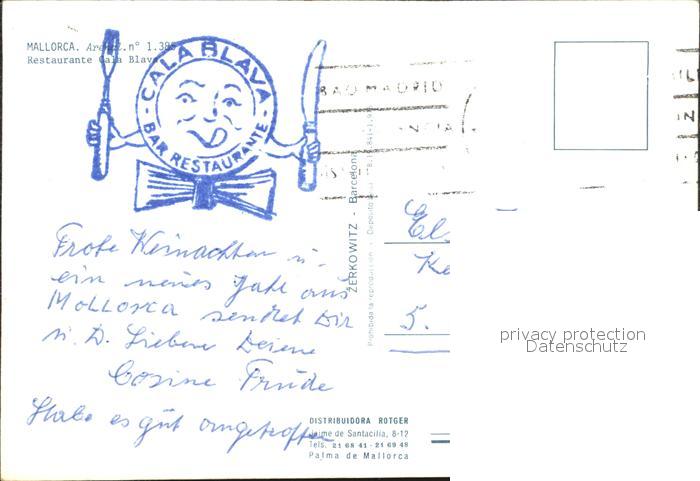 MALLORCA. Arenal. nº 1.385
Restaurante Cala Blava
CALA BLAVA
BAR RESTAURANTE
BAO MADRID
ZERKOWITZ - Barcelona
Prohibida la reproducción - Depósito
Frohe Weinachten u.
ein neues Jahr aus
MOLLORCA sendet Dir
u. D. Lieben Deine
Cosine Trude
Habe es gut angetroffen
El
Ke
5.
privacy protection
Datenschutz
DISTRIBUIDORA ROTGER
Jaime de Santacilia, 8-12
Tels. 21 68 41 - 21 69 48
Palma de Mallorca